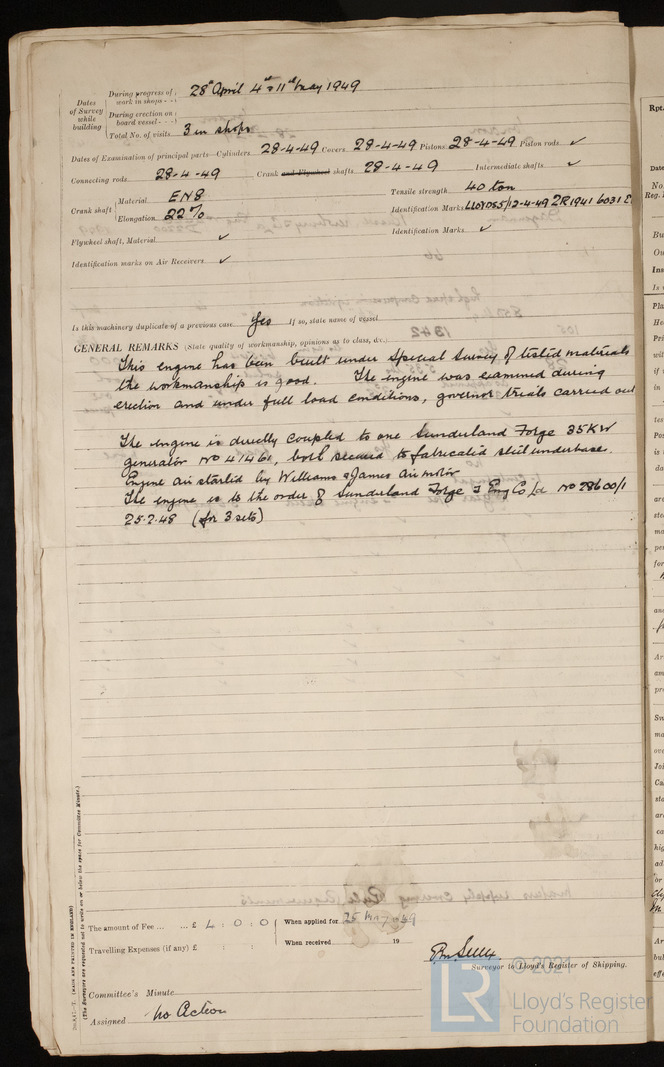 Dates of Survey while building
During progress of work in shops - - 28th April 4th & 11th May 1949
During erection on board vessel - - -
Total No. of visits 3 in shops
Dates of Examination of principal parts—Cylinders 28-4-49 Covers 28-4-49 Pistons 28-4-49 Piston rods ✓
Connecting rods 28-4-49 Crank and Flywheel shafts 28-4-49 Intermediate shafts ✓
Crank shaft Material EN8 Tensile strength 40 ton
Elongation 22% Identification Marks LLOYDS 5/12-4-49 ZR1941 6031
Flywheel shaft, Material ✓ Identification Marks ✓
Identification marks on Air Receivers ✓
Is this machinery duplicate of a previous case Yes If so, state name of vessel
GENERAL REMARKS (State quality of workmanship, opinions as to class, &c.)
This engine has been built under Special Survey of tested materials
the workmanship is good. The engine was examined during
erection and under full load conditions, governor trials carried out
The engine is directly coupled to one Sunderland Forge 35KW
generator No 41461, both secured to fabricated steel underbase.
Engine air started by Williams & James Air motor
The engine is to the order of Sunderland Forge & Eng Co Ld No 28600/1
25.2.48 (for 3 sets)
The amount of Fee ... ... £ 4 : 0 : 0 When applied for 25 MAY 1949
Travelling Expenses (if any) £ : : When received 19
Surveyor to Lloyd's Register of Shipping.
Committee's Minute
Assigned No Action
(MADE AND PRINTED IN ENGLAND)
(The Surveyors are requested not to write on or below the space for Committee Minute.)
© 2021
LR
Lloyd's Register
Foundation